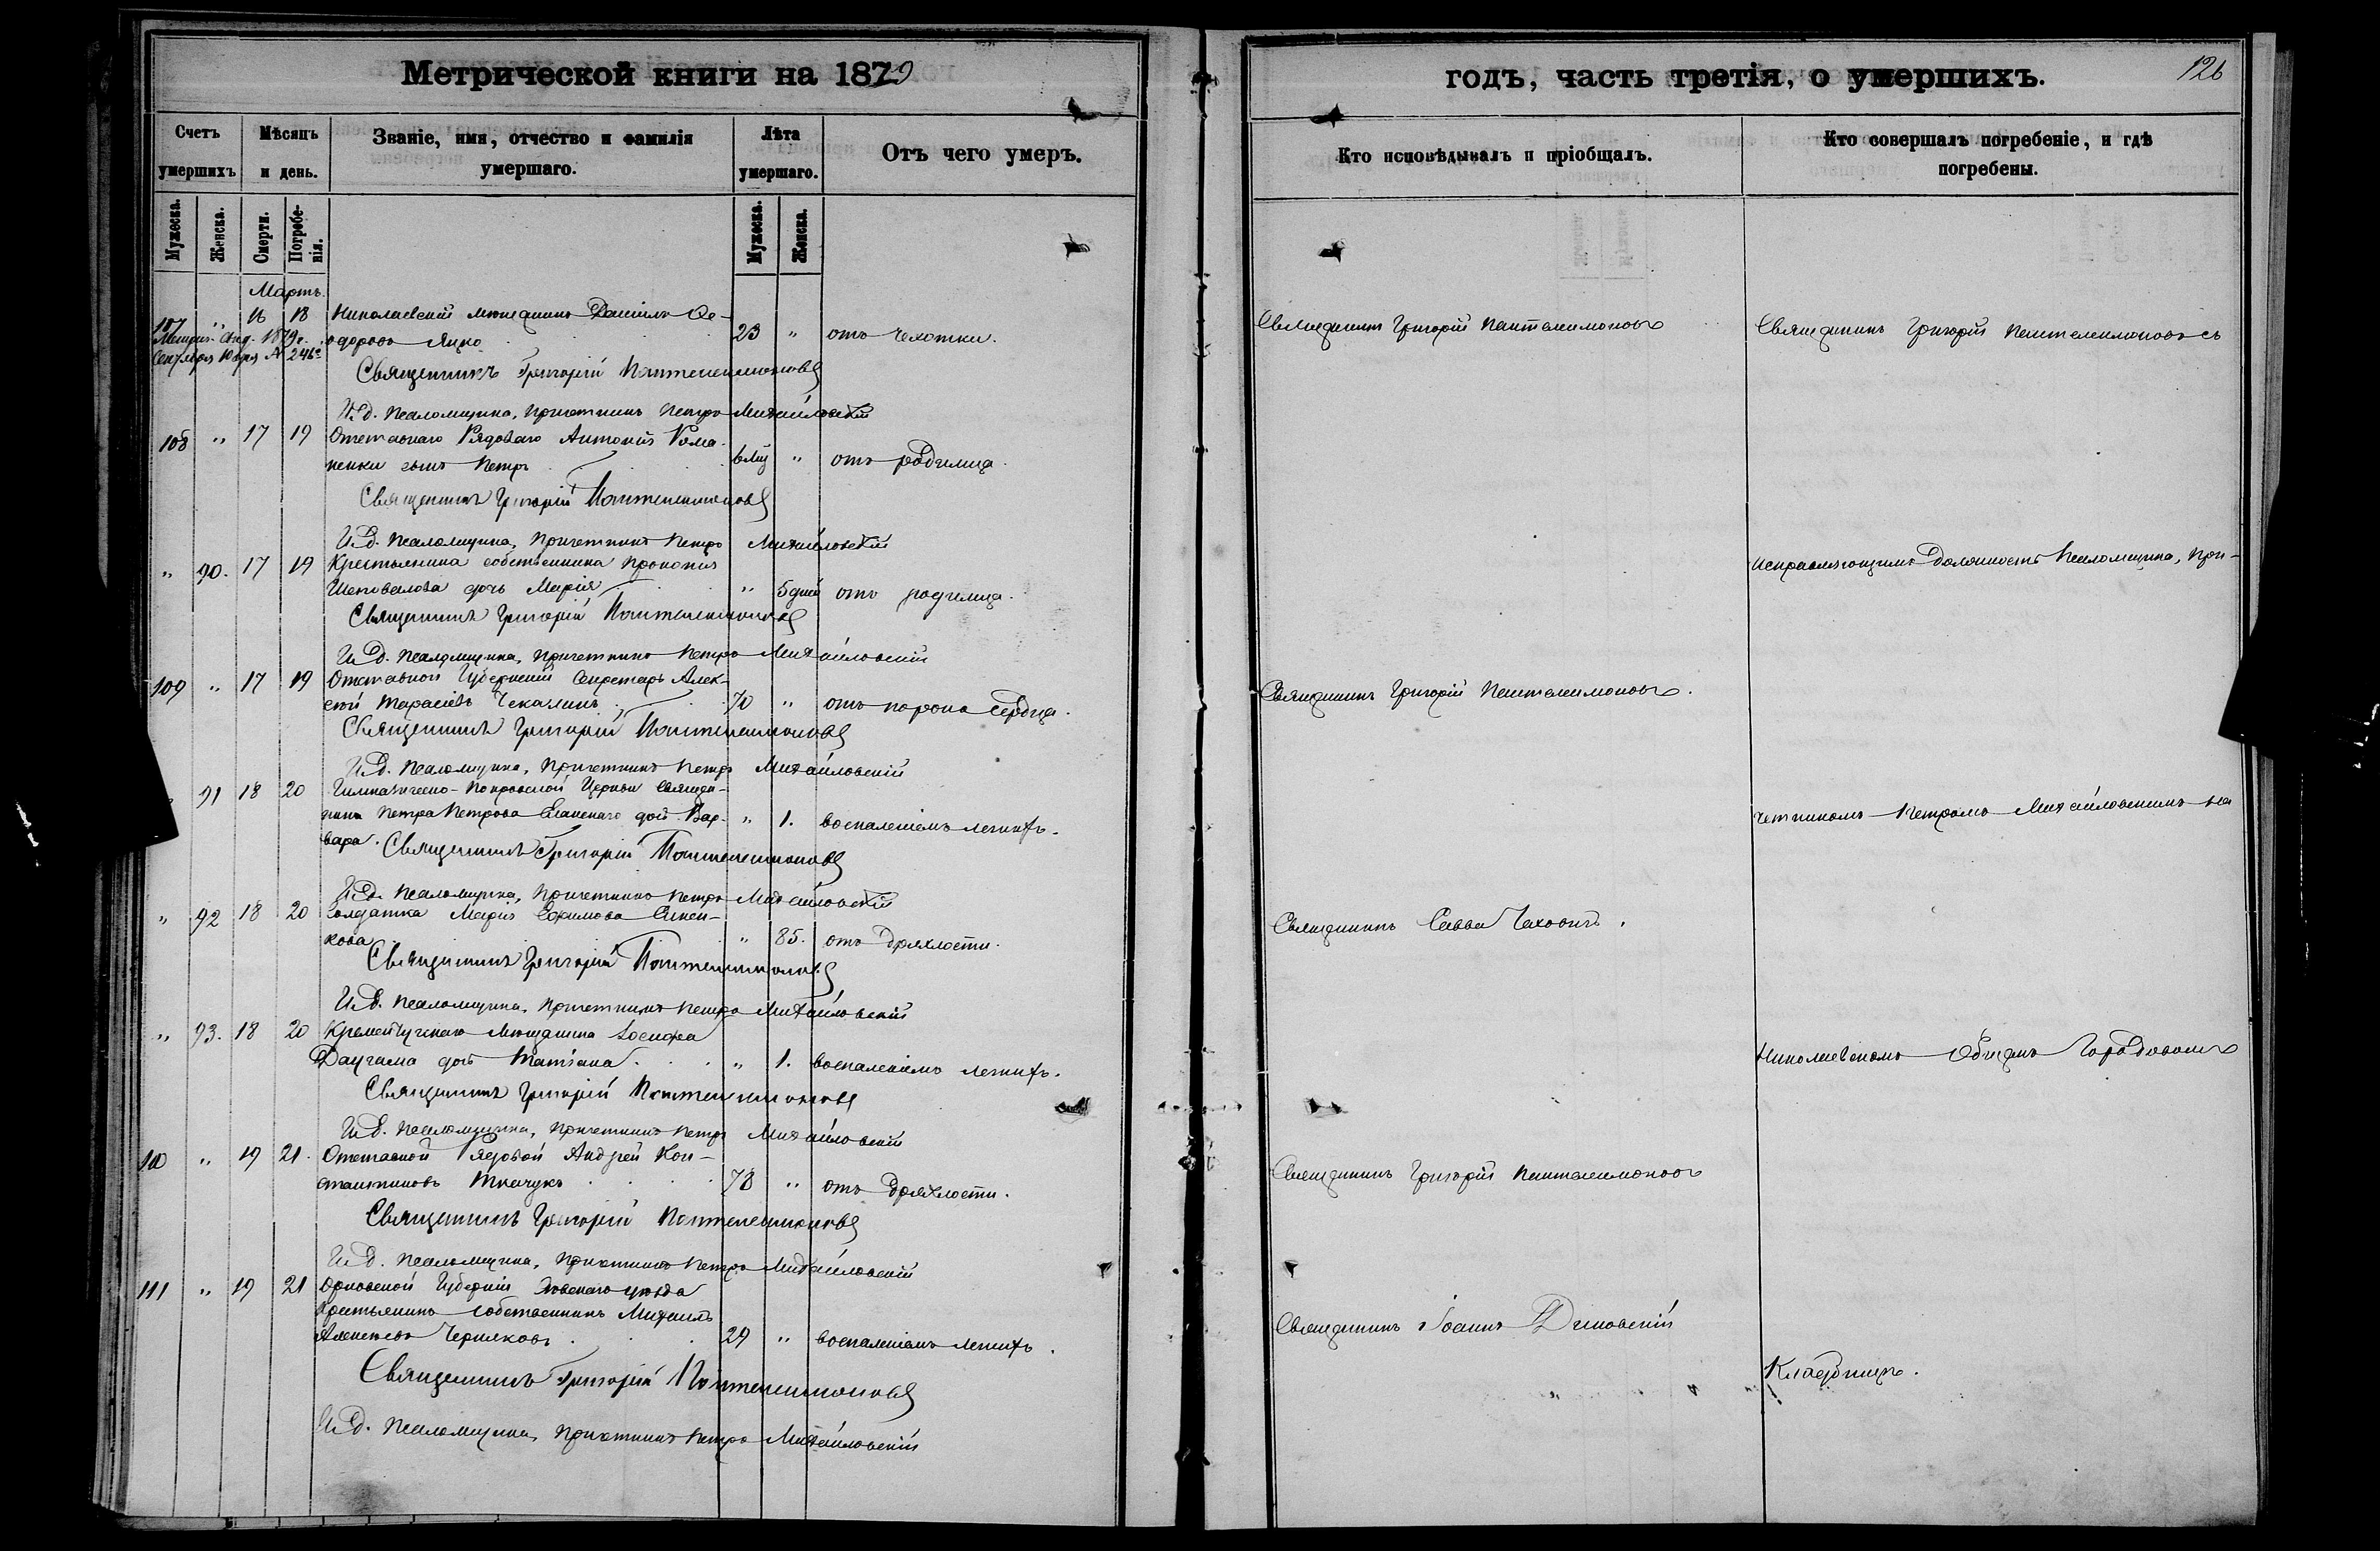 Метрической книги на 1879
годъ, часть третія, о умершихъ.
126
Счетъ умершихъ
Мѣсяцъ и день.
Званіе, имя, отчество и фамилія умершаго.
Лѣта умершаго.
Отъ чего умеръ.
Кто исповѣдывалъ и пріобщалъ.
Кто совершалъ погребеніе, и гдѣ погребены.
Мужеска.
Женска.
Смерти.
Погребенія.
Мужеска.
Женска.
Мартъ.
107 " 16 18 Николаевскій мѣщанинъ Даніилъ Ѳе-
одоровъ Яцко 23 " отъ чахотки.
1879г.
Сентября № 246
Священникъ Григорій Пантелеимоновъ
Священникъ Григорій Пантелеимоновъ съ
Священникъ Григорій Пантелеимоновъ
И.д. псаломщика, Причетникъ Петръ Михайловскій
108 " 17 19 Отставнаго Рядоваго Антонія Рома-
ненки сынъ Петръ 6 мѣ " отъ родимца.
Священникъ Григорій Пантелеимоновъ
И.д. псаломщика, Причетникъ Петръ Михайловскій
" 90. 17 19 Крестьянина собственника Прокопія
Шаповалова дочь Марія " 5 дней отъ родимца.
Исправляющимъ Должность Псаломщика, При-
Священникъ Григорій Пантелеимоновъ
И.д. псаломщика, Причетникъ Петръ Михайловскій
109 " 17 19 Отставной Губернскій Секретарь Алек-
сѣй Тарасіевъ Чекалинъ 70 " отъ порока сердца.
Священникъ Григорій Пантелеимоновъ.
Священникъ Григорій Пантелеимоновъ
И.д. псаломщика, Причетникъ Петръ Михайловскій
91 18 20 Гимназическо-Покровской Церкви Священ-
ника Петра Петрова дочь Вар- " 1. воспаленіемъ легкихъ.
вара. Священникъ Григорій Пантелеимоновъ
четникомъ Петромъ Михайловскимъ на
И.д. псаломщика, Причетникъ Петръ Михайловскій
" 92 18 20 Солдатка Марія Ефимова
кова " 85. отъ дряхлости.
Священникъ Савва
Священникъ Григорій Пантелеимоновъ
И.д. псаломщика, Причетникъ Петръ Михайловскій
" 93. 18 20 Кременчугскаго мѣщанина Іосифа
дочь Татіана " 1. воспаленіемъ легкихъ.
Николаевскомъ Общемъ Городовомъ
Священникъ Григорій Пантелеимоновъ
И.д. псаломщика, Причетникъ Петръ Михайловскій
110 " 19 21. Отставной Рядовой Андрей Кон-
стантиновъ Ткачукъ 78 " отъ дряхлости.
Священникъ Григорій Пантелеимоновъ
Священникъ Григорій Пантелеимоновъ
И.д. псаломщика, Причетникъ Петръ Михайловскій
111 " 19 21 Орловской Губерніи уѣзда
крестьянинъ собственникъ Михаилъ
Алексѣевъ Черниковъ 29 " воспаленіемъ легкихъ.
Священникъ Іоаннъ
Священникъ Григорій Пантелеимоновъ
Кладбищѣ.
И.д. псаломщика, Причетникъ Петръ Михайловскій